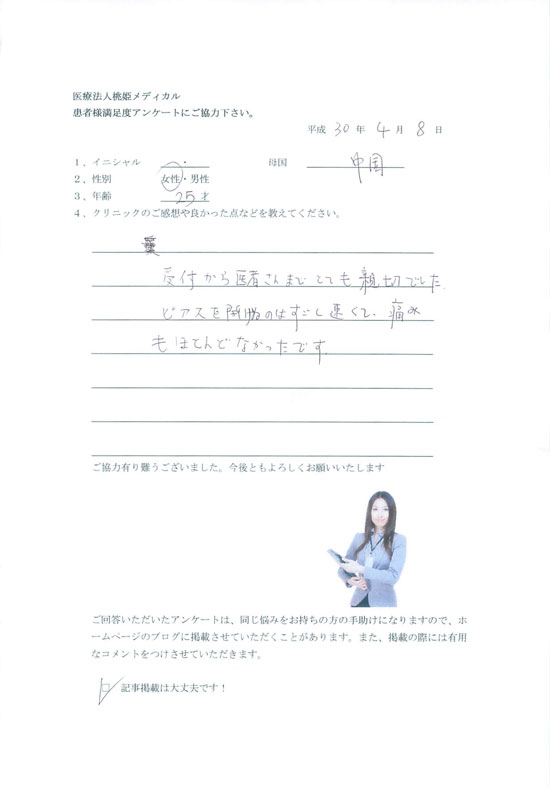 医療法人桃姫メディカル
患者様満足度アンケートにご協力下さい。
平成 30 年 4 月 8 日
1、イニシャル ・ 母国 中国
2、性別 女性・男性
3、年齢 25才
4、クリニックのご感想や良かった点などを教えてください。
受付から医者さんまでとても親切でした.
ピアスを開けるのはすごし速くて、痛み
もほとんどなかったです.
ご協力有り難うございました。今後ともよろしくお願いいたします
ご回答いただいたアンケートは、同じ悩みをお持ちの方の手助けになりますので、ホ
ームページのブログに掲載させていただくことがあります。また、掲載の際には有用
なコメントをつけさせていただきます。
記事掲載は大丈夫です！